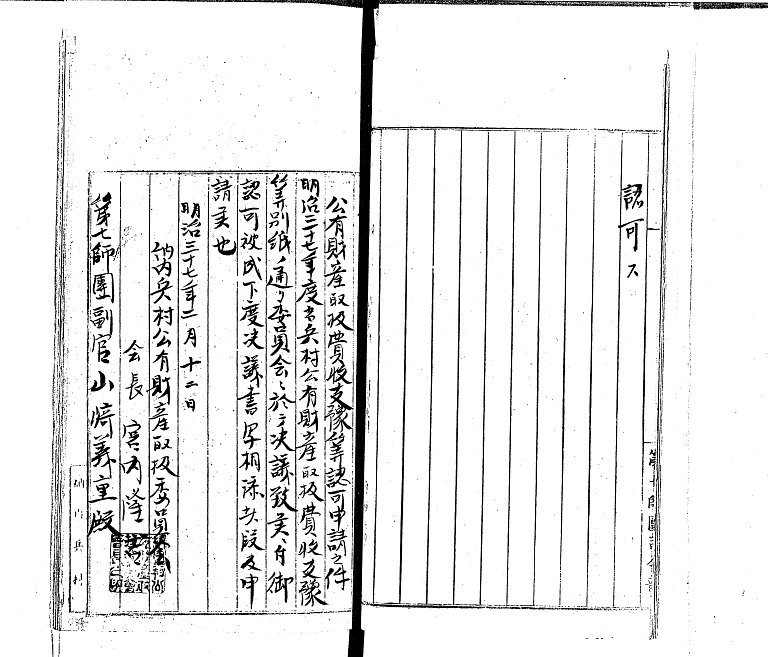 認可ス
公有財産取扱費收支豫算認可申請之件
明治三十七年度當兵村公有財産取扱費收支豫
算別紙ノ通リ委員会ニ於テ決議致候ニ付御
認可被成下度決議書写相添此段及申
請候也
明治三十七年二月十二日
納内兵村公有財産取扱委員
会長 宮内隆
第七師團副官山
義重殿
納内兵村